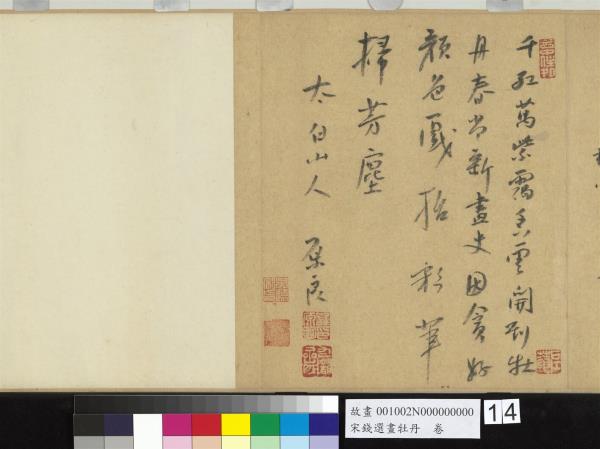 千紅萬紫靄香雲開到牡
丹春尚新畫史因貪好
顏色戲拈彩筆
掃芳塵
太白山人
故畫 001002N000000000
宋錢選畫牡丹 卷
14